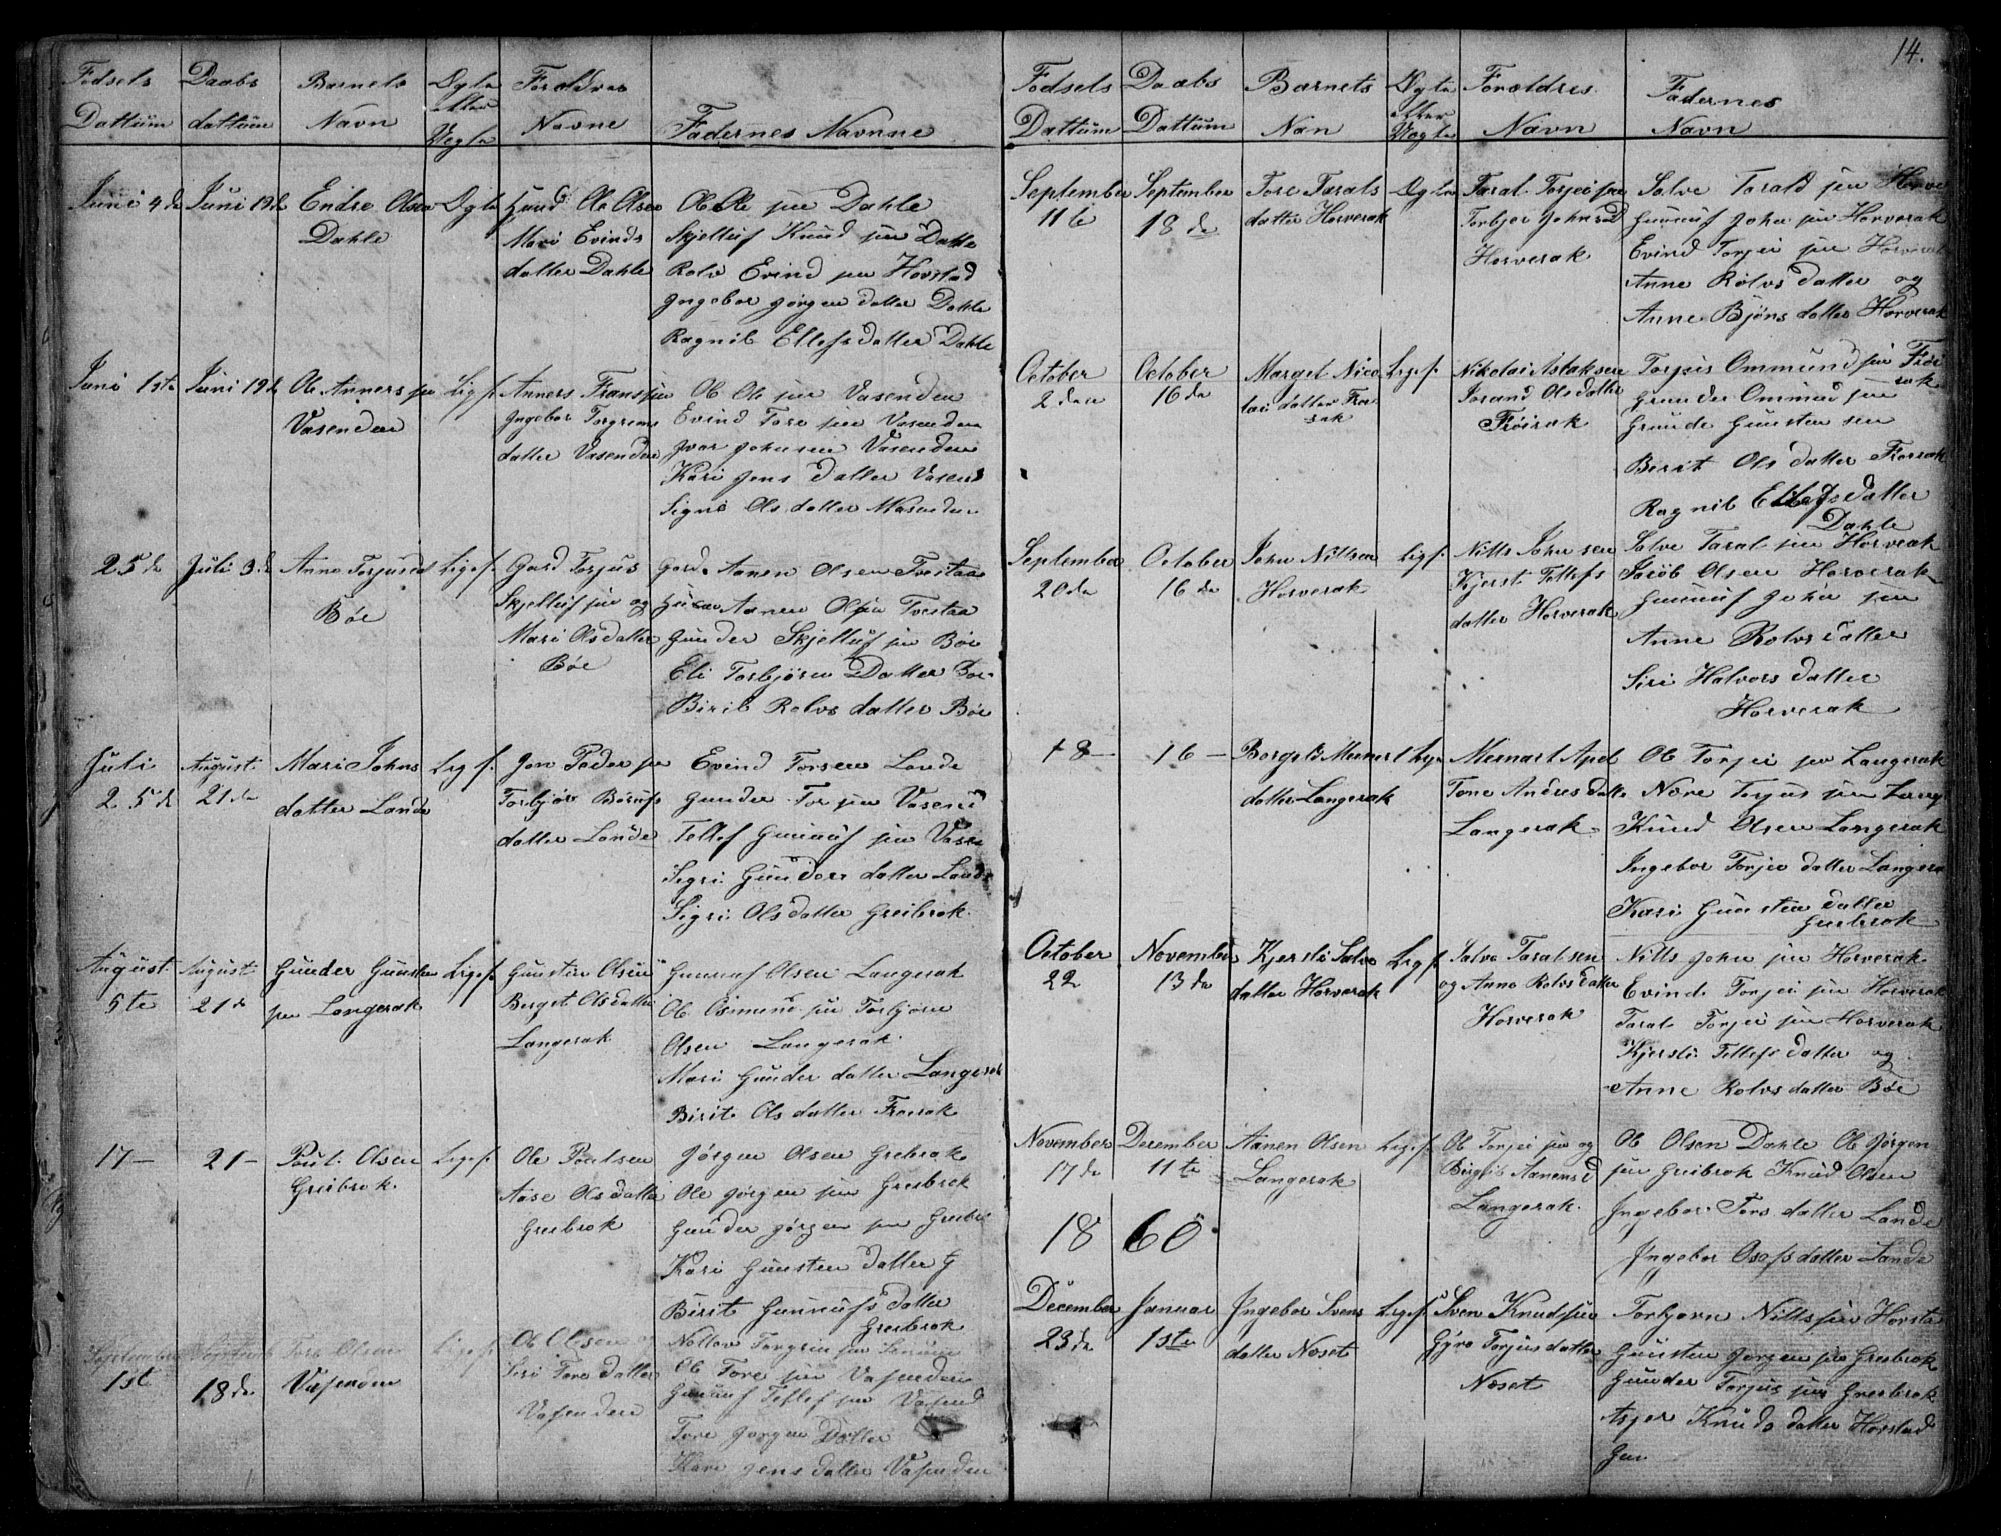 14.
Fødsels Dattum
Daabs dattum
Barnets Navn
Ægte eller Uegte
Forældres Navne
Fadernes Navnne
Juni 4de
Juni 19de
Endre Olsen
Dahle
Ægte
Knud Ole Olsen
Mari Evinds
datter Dahle
Ole Ole sen Dahle
Skjelluf Knud sen Dahle
Rolv Evind sen Horstad
Ingebor Jørgen datter Dahle
Ragnil Ellefsdatter Dahle
Juni 1ste
Juni 19de
Ole Anners sen
Vasenden
Lig f.
Anners Franssen
Ingebor Torgrems
datter Vasenden
Ole Ole sen Vasenden
Evind Tore sen Vasenden
Ivar Johnsen Vasenden
Kari Jens datter Vasend
Signe Ols datter Vasenden
25de
Juli 3de
Anne Torjusd
Bøe
Lige f.
Gard Torjus
Skjelluf sen og
Mari Olsdatter
Bøe
Aanen Olsen Tveitaa
Aanen Olsen Tveitaa
Gunder Skjelluf sen Bøe
Eli Torbjøren Datter Bøe
Birit Rolvs datter Bøe
Juli
25de
August
21de
Mari Johns
datter Lande
Lig f.
Jon Peder sen
Torbjør
datter Lande
Evind Torsen Lande
Gunder Tor sen Vasend
Tellef Gunnuf sen Vasen
Sigri Gunders datter Lande
Sigri Olsdatter Greibrok
August
5te
August
21de
Gunder Gunsten
sen Langerak
Lige f.
Gunsten Olsen
Berget Olsdatter
Langerak
Gunnuf Olsen Langerak
Ole Osmund sen Torbjøren
Olsen Langerak
Mari Gunder datter Langerak
Birit Ols datter Frøirak
17 —
21 —
Poul Olsen
Greibrok
Lige f.
Ole Poulsen
Aase Olsdatter
Greibrok
Jørgen Olsen Greibrok
Ole Jørgen sen Greibrok
Gunder Jørgen sen Greibr
Kari Gunsten datter G
Birit Gunnufs datter
Greibrok
September
1st
September
18de
Tore Olsen
Vasenden
Lige f.
Ole Olesen og
Siri Tore datter
Vasenden
Ole Tore sen Vasenden
Gunnuf Tellef sen Vasend
Tore Jørgen Datter
Kari Jens datter Vasenden
Fødsels Dattum
Daabs Dattum
Barnets Nan
Ægte eller Uægte
Forældres Navn
Fadernes Navn
September
11te
September
18de
Tore Tarals
datter Horverak
Ægte
Taral Torjei sen
Torbjør Johnsd
Horverak
Salve Tarald sen Horve
Gunnuf John sen Horverak
Evind Torjei sen Horverak
Anne Rolvs datter og
Anne Bjøns datter Horverak
October
2den
October
16de
Marget Nico
lai datter Frøi
rak
Lige f.
Nikolai Aslaksen
Jorand Olsdatter
Frøirak
Torjus Ommund sen Frøi
rak
Gunder Ommud sen
Grunde Gunsten sen
Berit Ols datter Frøirak
Ragnil Ellefsdatter
Dahle
September
20de
October
16de
John Nillsen
Horverak
Lig f.
Nills John sen
Kjersti Tellefs
datter Horverak
Salve Taral sen Horverak
Jacob Olsen Horverak
Gunnuf John sen
Anne Rolvs datter
Siri Halvors datter
Horverak
18 —
16 —
Borgild Meinart
datter Langerak
Lige
Meinart Apel
Tone Andresdatte
Langerak
Ole Torjei sen Langerak
Nære Torjus sen Lang
Knud Olsen Langerak
Ingebor Torjei datter Langera
Kari Gunsten datter
Greibrok
October
22
November
13de
Kjersti Salve
datter Horverak
Lig f.
Salve Taralsen
og Anne Rolvs datter
Horverak
Nills John sen Horverak
Evind Torjei sen Horverak
Taral Torjei sen Horverak
Kjersti Tellefs datter og
Anne Rolvs datter Bøe
November
17de
December
11te
Aanen Olsen
Langerak
Lige f.
Ole Torjei sen og
Birgit Aanensd
Langerak
Ole Olsen Dahle Ole Jørgen
sen Greibrok Knud Olsen
Ingebor Tors datter Lande
Ingebor Osefs datter Lande
1860
December
23de
Januar
1ste
Ingebor Svens
datter Næset
Lige f.
Sven Knudssen
Gyro Torjus datter
Næset
Torbjørn Nillssen Horsta
Gunsten Jørgen sen Greibrok
Gunder Torjus sen Greibrok
Asjer Knuds datter Horstad